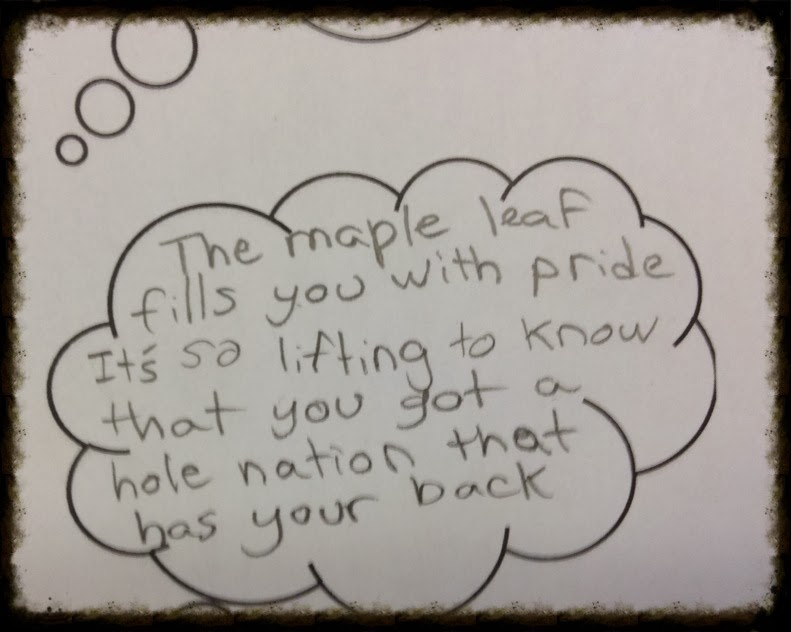 The maple leaf
fills you with pride
It's so lifting to know
that you got a
hole nation that
has your back